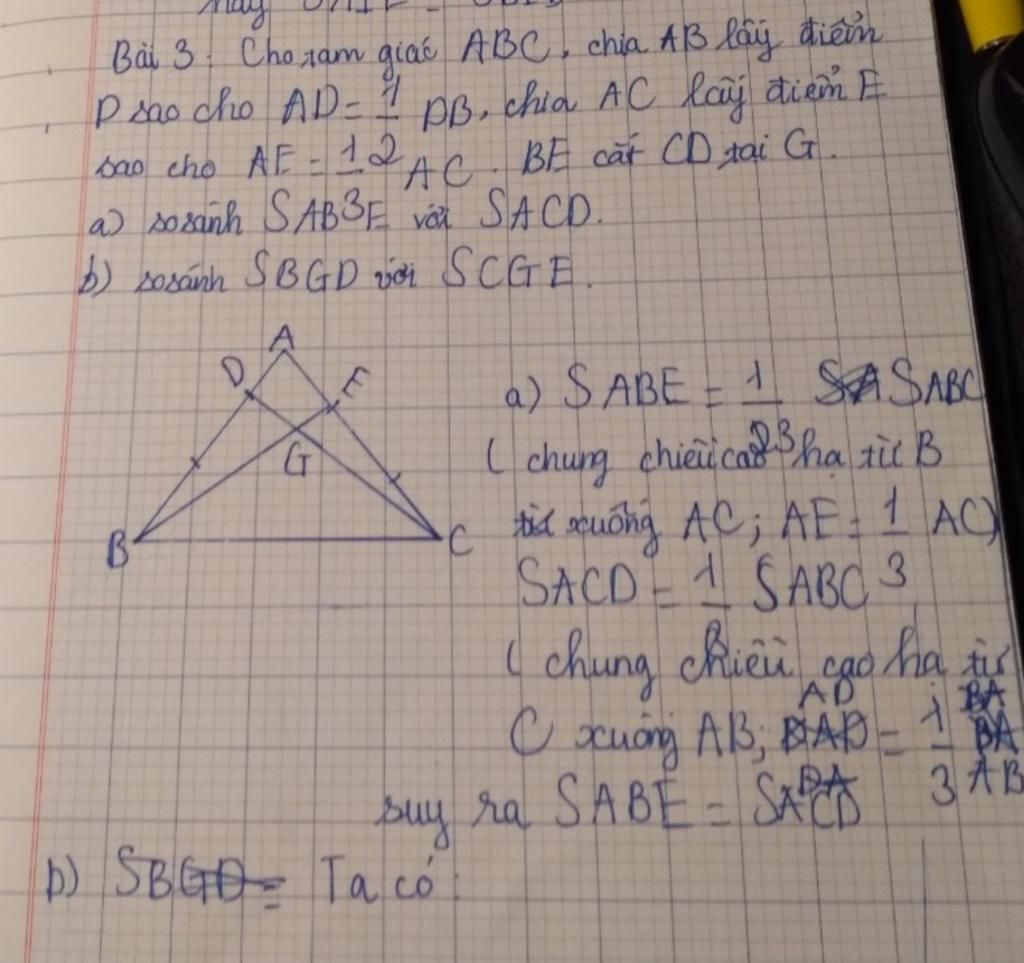 Bài 3: Cho tam giác ABC, chia AB lấy điểm
D sao cho AD = 1/2 DB, chia AC lấy điểm E
sao cho AE = 1/3 AC. BE cắt CD tại G.
a) so sánh SABE với SACD.
b) so sánh SBGD với SCGE.
A
D
E
G
B
C
a) SABE = 1/3 SABC
( chung chiều cao hạ từ B
xuống AC; AE = 1/3 AC)
SACD = 1/3 SABC
( chung chiều cao hạ từ
C xuống AB; AD = 1/3 AB
suy ra SABE = SACD
b) Ta có: